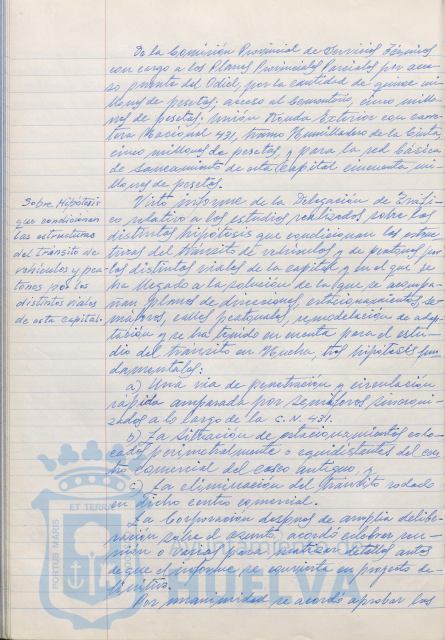 De la Comisión Provincial de Servicios Técnicos
con cargo a los Planes Provinciales Parciales por acce
so puente del Odiel, por la cantidad de quince mi-
llones de pesetas; acceso al Cementerio, cinco millo
nes de pesetas; Unión Ronda Exterior con carre
tera Nacional 431, tramo Humilladero de la Cinta,
cinco millones de pesetas, y para la red básica
de saneamiento de esta Capital cincuenta mi-
llones de pesetas.
Sobre Hipótesis
que condicionan
las estructuras
del tránsito de
vehículos y pea-
tones por los
distintos viales
de esta capital.
Visto informe de la Delegación de Tráfi
co relativo a los estudios realizados sobre las
distintas hipótesis que condicionan las estruc
turas del tránsito de vehículos y de peatones por
los distintos viales de la capital y en el que se
ha llegado a la solución de la que se acompa-
ñan planos de direcciones, estacionamientos, se-
máforos, calles peatonales, remodelación de adap
tación y se ha tenido en cuenta para el estu-
dio del tránsito en Huelva, tres hipótesis fun
damentales:
a) Una vía de penetración y circulación
rápida amparada por semáforos sincroni-
zados a lo largo de la C.N. 431.
b) La situación de estacionamientos colo-
cados perimetralmente o equidistantes del cen
tro comercial del casco antiguo, y
c) La eliminación del tránsito rodado
en dicho centro comercial.
La Corporación después de amplia delibe-
ración sobre el asunto, acordó celebrar reu-
nión o varias para matizar detalles antes
de que el informe se convierta en proyecto de-
finitivo.
Por unanimidad se acordó aprobar los
PORTUS MARIS
ET TERRAE
HUELVA